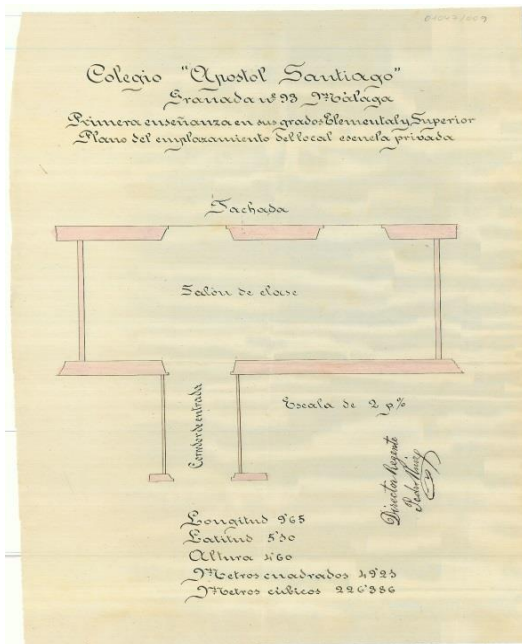 Colegio "Apostol Santiago"
Granada nº 93 Málaga
Primera enseñanza en sus grados Elemental y Superior
Plano del emplazamiento del local escuela privada
Fachada
Salón de clase
Corredor de entrada
Escala de 2 p%
Director Regente
Pedro
Longitud 9'65
Latitud 5'30
Altura 4'60
Metros cuadrados 49'23
Metros cúbicos 226'386